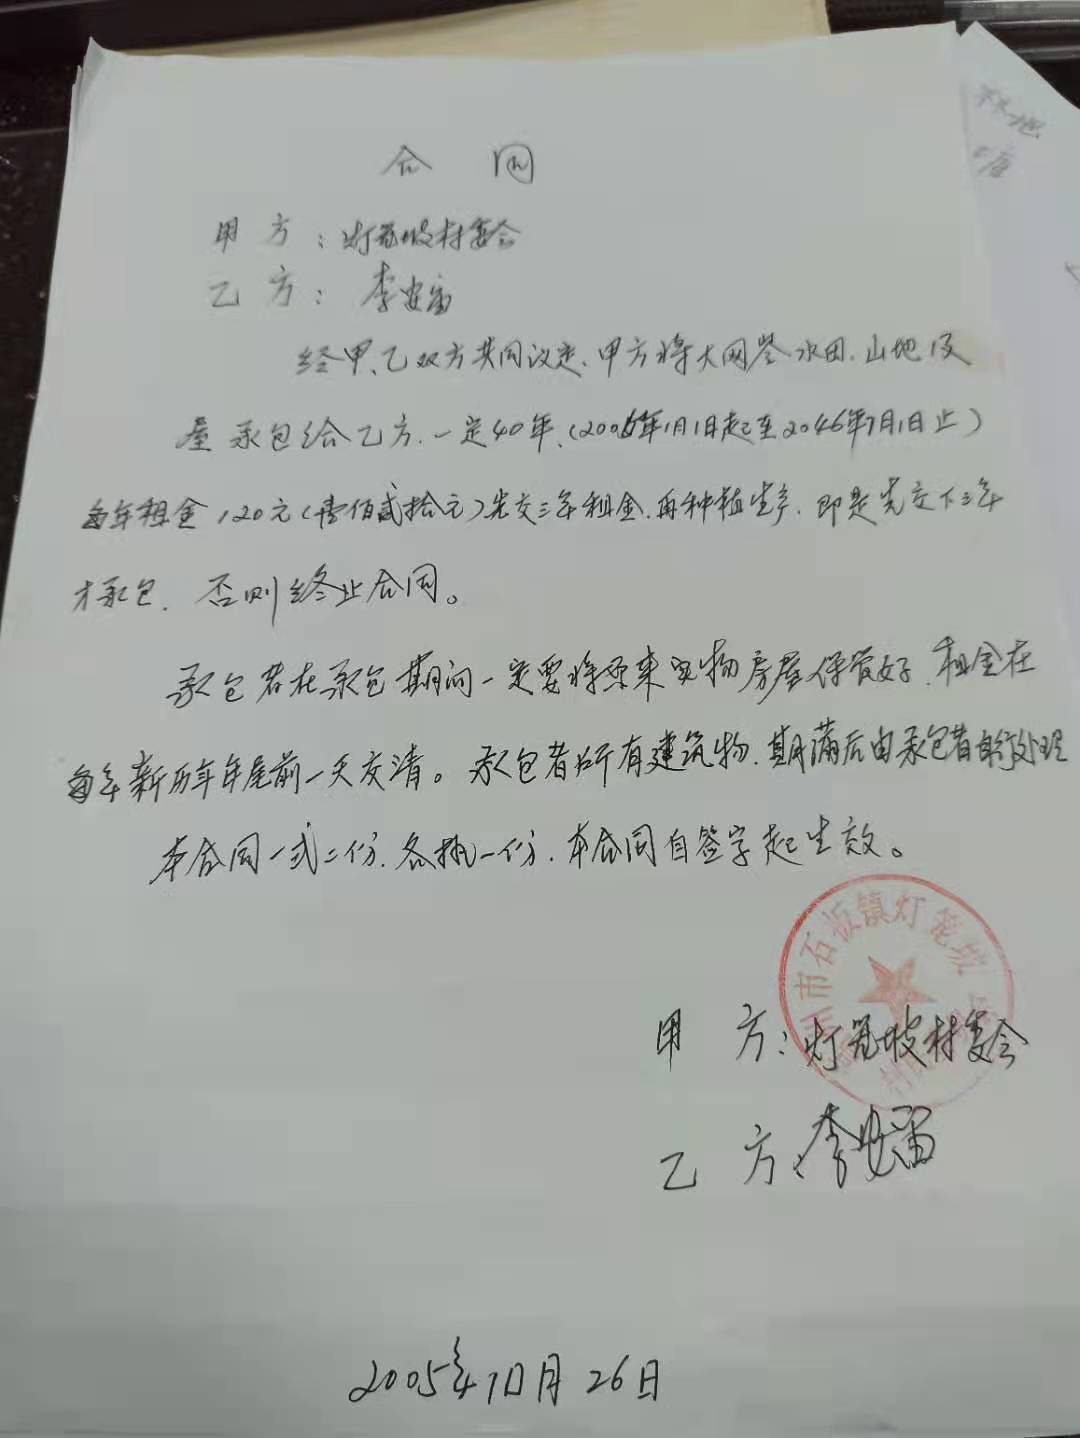 合 同
甲 方：灯笼坡村委会
乙 方：李安富
经甲、乙双方共同议定、甲方将大网垄水田、山地及
屋承包给乙方、一定40年、(2006年1月1日起至2046年1月1日止)
每年租金120元(壹佰贰拾元)先交三年租金、再种植生产、即是先交下三年
才承包、否则终止合同。
承包者在承包期间一定要将原来实物房屋保管好、租金在
每年新历年年尾前一天交清。承包者所有建筑物、期满后由承包者自行处理
本合同一式二份、各执一份、本合同自签字起生效。
州市石板镇灯笼坡
甲 方：灯笼坡村委会
乙 方：李安富
2005年10月26日
林地